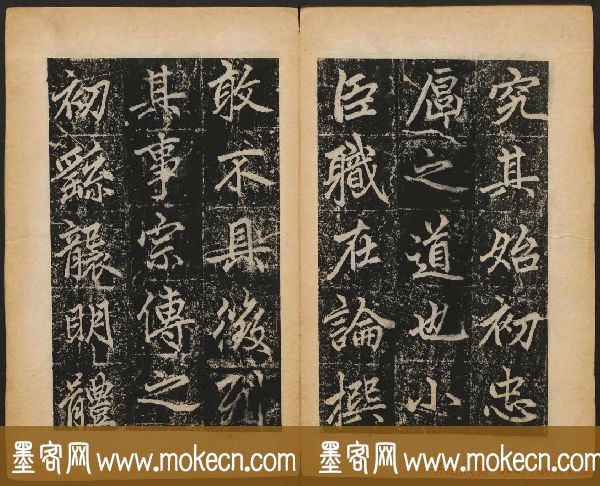 究其始初忠
厚之道也小
臣職在論撰
敢不具徵
其事宗傳之
初繇襲明體
墨客网 www.mokecn.com 墨客网 www.mokecn.com